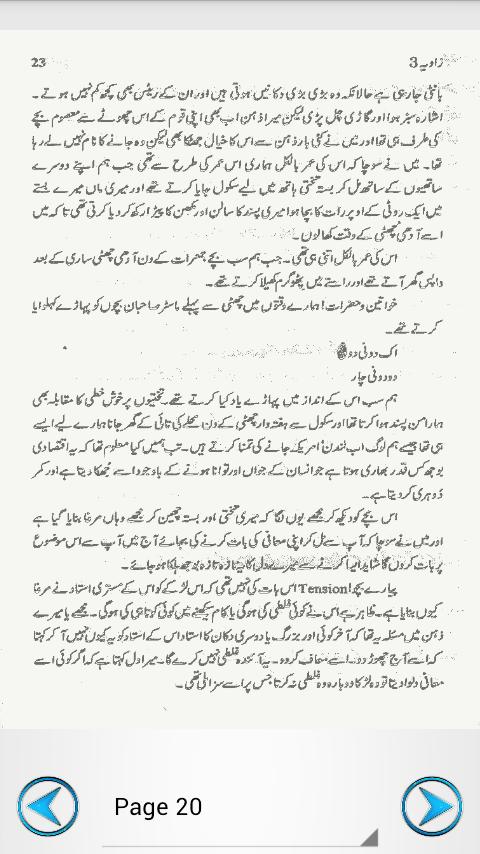 زاویہ 3
23
بانٹی جا رہی ہے حالانکہ وہ بڑی بڑی دکانیں ہوتی ہیں اور ان کے ریٹس بھی کچھ کم نہیں ہوتے۔
اشارہ سبز ہوا اور گاڑی چل پڑی لیکن میرا ذہن اب بھی اپنی قوم کے اس چھوٹے سے معصوم بچے
کی طرف ہی تھا اور میں نے کئی بار ذہن سے اس کا خیال جھٹکا بھی لیکن وہ جانے کا نام نہیں لے رہا
تھا۔ میں نے سوچا کہ اس کی عمر بالکل ہماری اس عمر کی طرح سے تھی جب ہم اپنے دوسرے
ساتھیوں کے ساتھ مل کر بستہ تختی ہاتھ میں لیے سکول جایا کرتے تھے اور میری ماں میرے بستے
میں ایک روٹی کے اوپر رات کا بچا ہوا میری پسند کا سالن اور مکھن کا پیڑا رکھ کر دیا کرتی تھی تاکہ میں
اسے آدھی چھٹی کے وقت کھا لوں۔
اس کی عمر بالکل اتنی ہی تھی۔ جب ہم سب بچے جمعرات کے دن آدھی چھٹی ساری کے بعد
واپس گھر آتے تھے اور راستے میں پٹھو گرم کھیلا کرتے تھے۔
خواتین و حضرات! ہمارے وقتوں میں چھٹی سے پہلے ماسٹر صاحبان بچوں کو پہاڑے کہلوایا
کرتے تھے۔
اک دونی دونی
دو دونی چار
ہم سب اس کے انداز میں پہاڑے یاد کیا کرتے تھے۔ تختیوں پر خوش خطی کا مقابلہ بھی
ہمارا من پسند ہوا کرتا تھا اور سکول سے ہفتہ وار چھٹی کے دن محلے کی نائی کے گھر جانا ہمارے لیے ایسے
ہی تھا جیسے ہم لوگ اب لندن امریکہ جانے کی تمنا کرتے ہیں۔ تب ہمیں کیا معلوم تھا کہ یہ اقتصادی
بوجھ کس قدر بھاری ہوتا ہے جو انسان کے جواں اور توانا ہونے کے باوجود اسے جھکا دیتا ہے اور کمر
دوہری کر دیتا ہے۔
اس بچے کو دیکھ کر مجھے یوں لگا کہ میری تختی اور بستہ چھین کر مجھے وہاں مرغا بنایا گیا ہے
اور میں نے سوچا کہ آپ سے مل کر اپنی معافی کی بات کرنے کی بجائے آج میں آپ سے اس موضوع
پر بات کروں گا شاید ایسا کرنے سے میرے دل کا یہ تازہ تازہ بوجھ ہلکا ہو جائے۔
پیارے بچو! Tension اس بات کی نہیں تھی کہ اس لڑکے کو اس کے مستری استاد نے مرغا
کیوں بنایا ہے۔ ظاہر ہے اس نے کوئی غلطی کی ہوگی یا کام سیکھنے میں کوئی کوتاہی کی ہوگی۔ مجھے یا میرے
ذہن میں مسئلہ یہ تھا کہ آخر کوئی اور بزرگ یا دوسری دکان کا استاد اس کے استاد کو یہ کیوں نہیں آ کر کہتا
کہ اسے آج چھوڑ دو۔ اسے معاف کر دو۔ یہ آئندہ غلطی نہیں کرے گا۔ میرا دل کہتا ہے کہ اگر کوئی اسے
معافی دلوا دیتا تو وہ لڑکا دوبارہ وہ غلطی نہ کرتا جس پر اسے سزا ملی تھی۔
Page 20